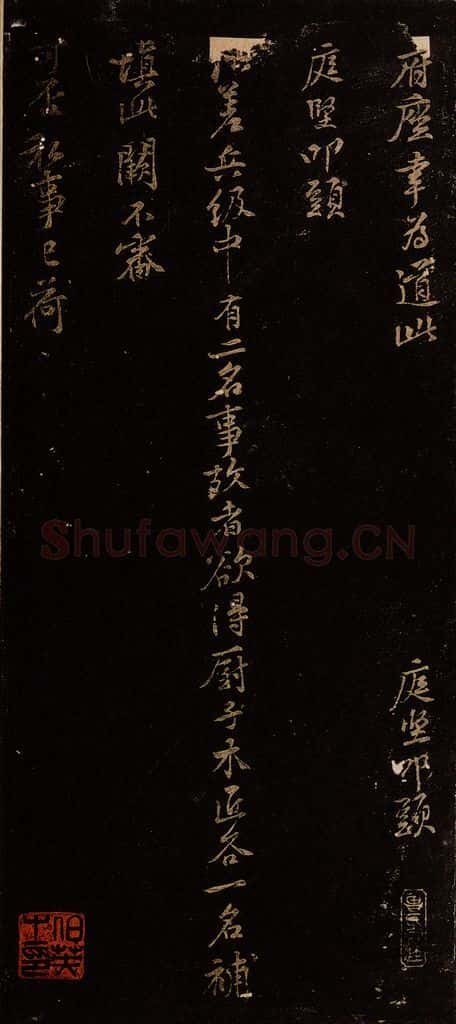 府座幸為道此
庭堅叩頭
庭堅叩頭
所差兵級中有二名事故者欲得厨子木匠各一名補
填此闕不審
可否私事已荷
Shufawang.CN